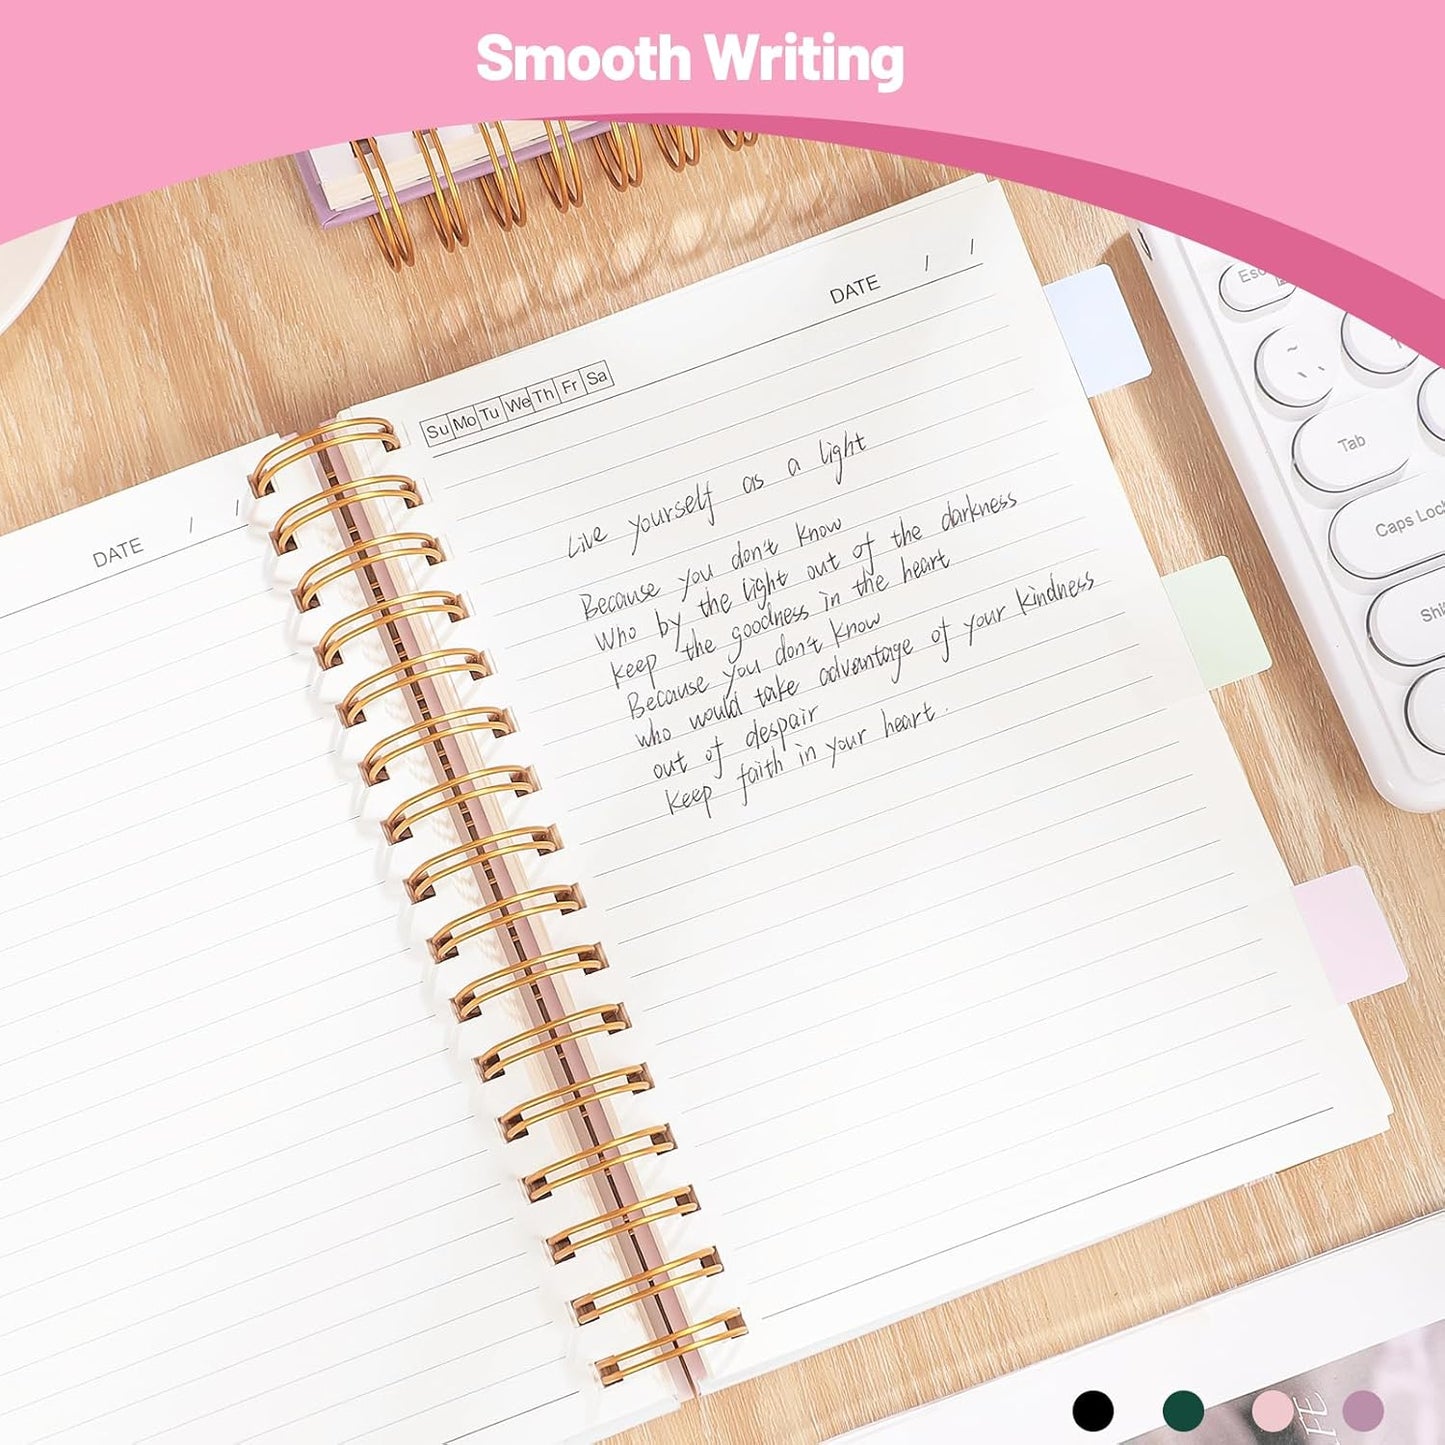 Smooth Writing
DATE / /
Su Mo Tu We Th Fr Sa
Live yourself as a light
Because you don't know
who by the light out of the darkness
keep the goodness in the heart
Because you don't know
who would take advantage of your kindness
out of despair
keep faith in your heart.
DATE / /
Esc
~
Tab
Caps Lock
Shi